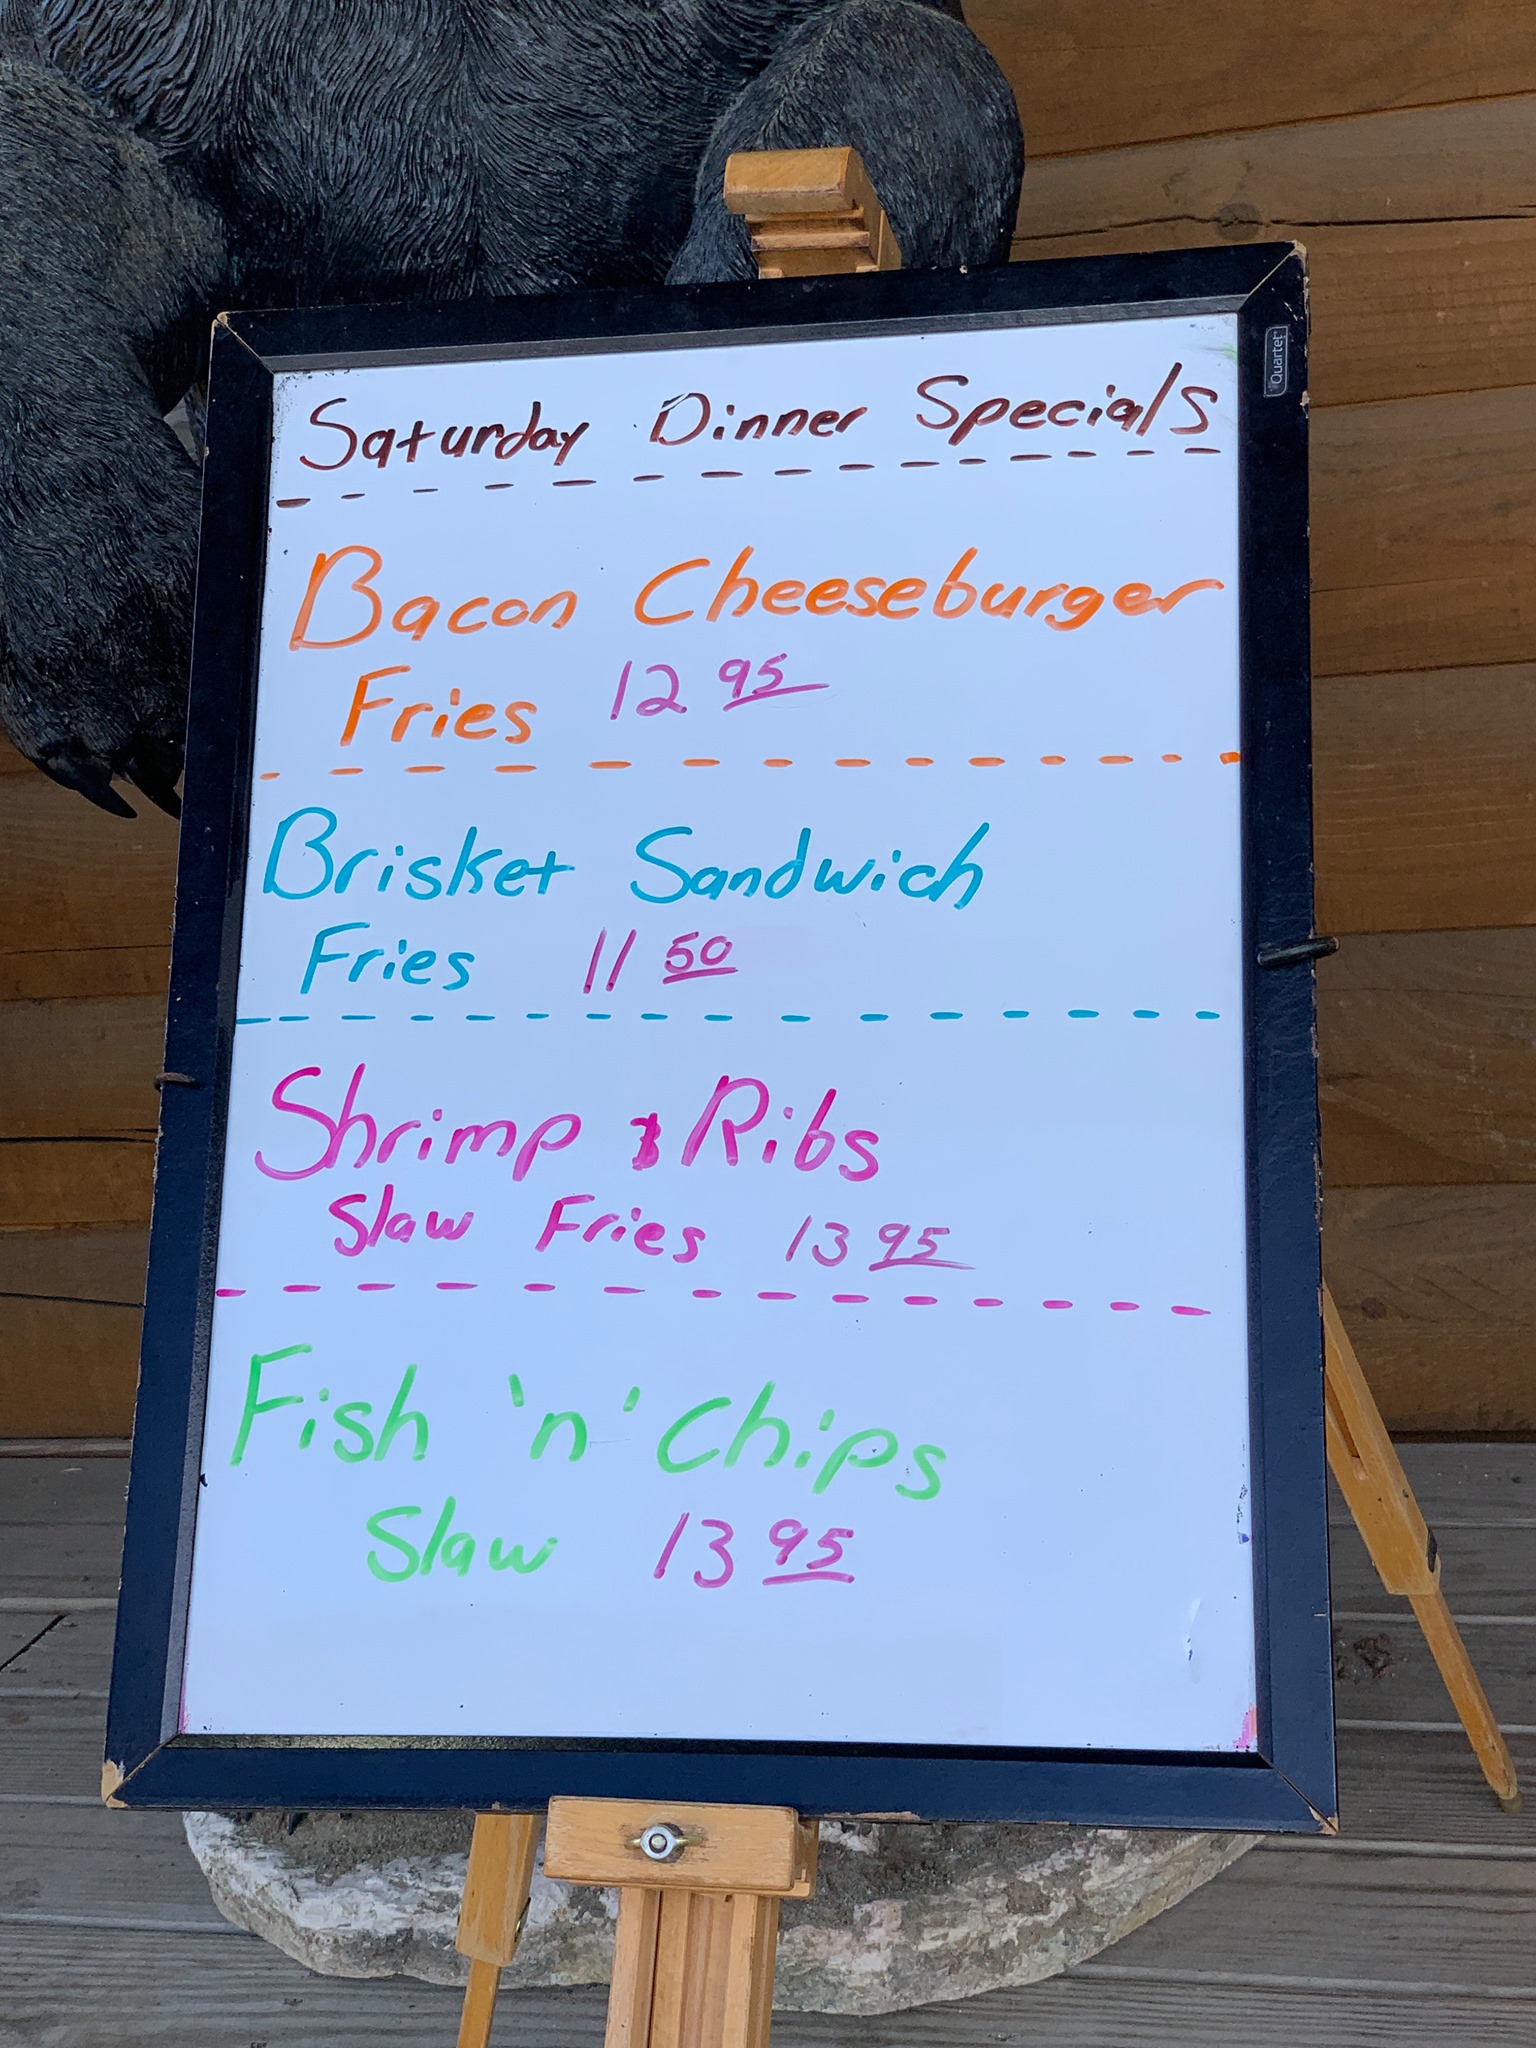 Quartet
Saturday Dinner Specials
Bacon Cheeseburger
Fries 12 95
Brisket Sandwich
Fries 11 50
Shrimp & Ribs
Slaw Fries 13 95
Fish 'n' Chips
Slaw 13 95